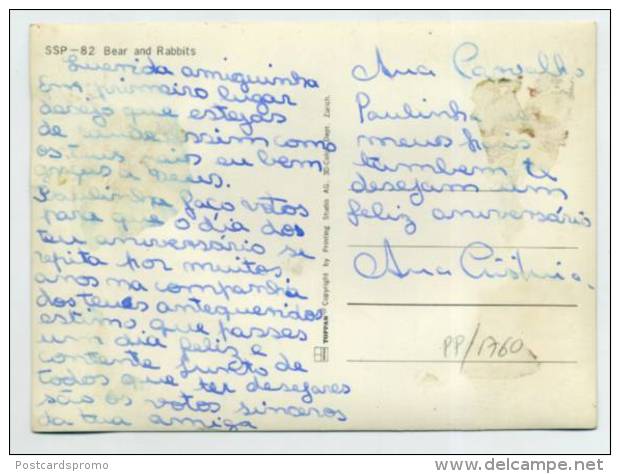 SSP-82 Bear and Rabbits
Querida amiguinha
Em primeiro lugar
desejo que estejas
de saude assim como
os teus pais eu bem
graças a Deus.
Paulinha faço votos
para que o dia dos
teu aniversário se
repita por muitos
anos na companhia
dos teus antequeridos
estimo que passes
um dia feliz e
contente junto de
todos que ter desejares
são os votos sinceros
da tua amiga
Ana Carvalho
Paulinha os
meus pais
tambem te
desejam um
feliz aniversário
Ana Cristina.
TOPPAN © Copyright by Printing Studio AG, 3D-Color Dept. Zürich
PP/1760
Postcardspromo
www.delcampe.net